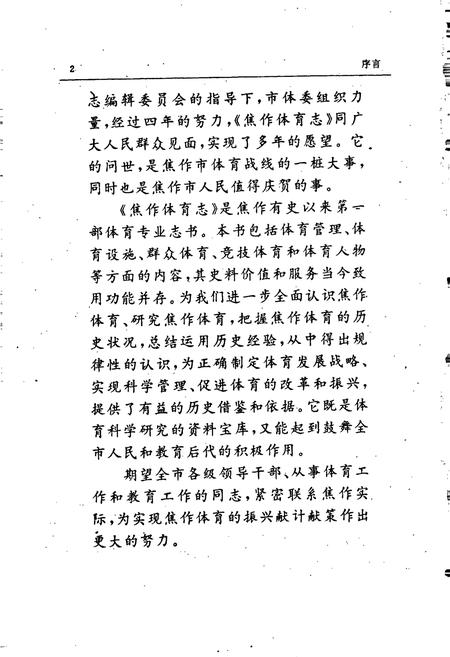 2 序言
志编辑委员会的指导下,市体委组织力
量,经过四年的努力,《焦作体育志》同广
大人民群众见面,实现了多年的愿望。它
的问世,是焦作市体育战线的一桩大事,
同时也是焦作市人民值得庆贺的事。
《焦作体育志》是焦作有史以来第一
部体育专业志书。本书包括体育管理、体
育设施、群众体育、竞技体育和体育人物
等方面的内容,其史料价值和服务当今致
用功能并存。为我们进一步全面认识焦作
体育、研究焦作体育,把握焦作体育的历
史状况,总结运用历史经验,从中得出规
律性的认识,为正确制定体育发展战略、
实现科学管理、促进体育的改革和振兴,
提供了有益的历史借鉴和依据。它既是体
育科学研究的资料宝库,又能起到鼓舞全
市人民和教育后代的积极作用。
期望全市各级领导干部、从事体育工
作和教育工作的同志,紧密联系焦作实
际,为实现焦作体育的振兴献计献策作出
更大的努力。